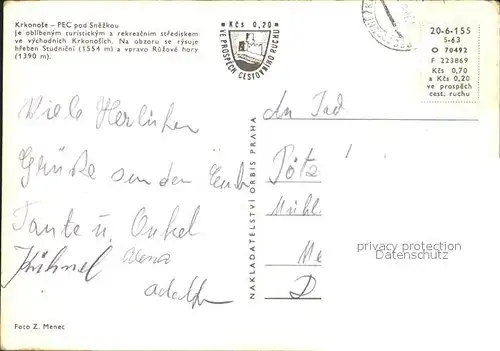 Krkonoše – PEC pod Sněžkou
Je oblíbeným turistickým a rekreačním střediskem
ve východních Krkonoších. Na obzoru se rýsuje
hřeben Studniční (1554 m) a vpravo Růžové hory
(1390 m)
Kčs 0,20
VE PROSPĚCH CESTOVNÍHO RUCHU
20-6-155
5-63
O 70492
F 223869
Kčs 0,70
a Kčs 0,20
ve prospěch
cest. ruchu
Viele Herlichen
Grüße senden Euch
Tante u. Onkel
Kühnel
Adolf
NAKLADATELSTVÍ ORBIS PRAHA
Pötz
Mühl
Me
D
privacy protection
Datenschutz
Foto Z. Menec